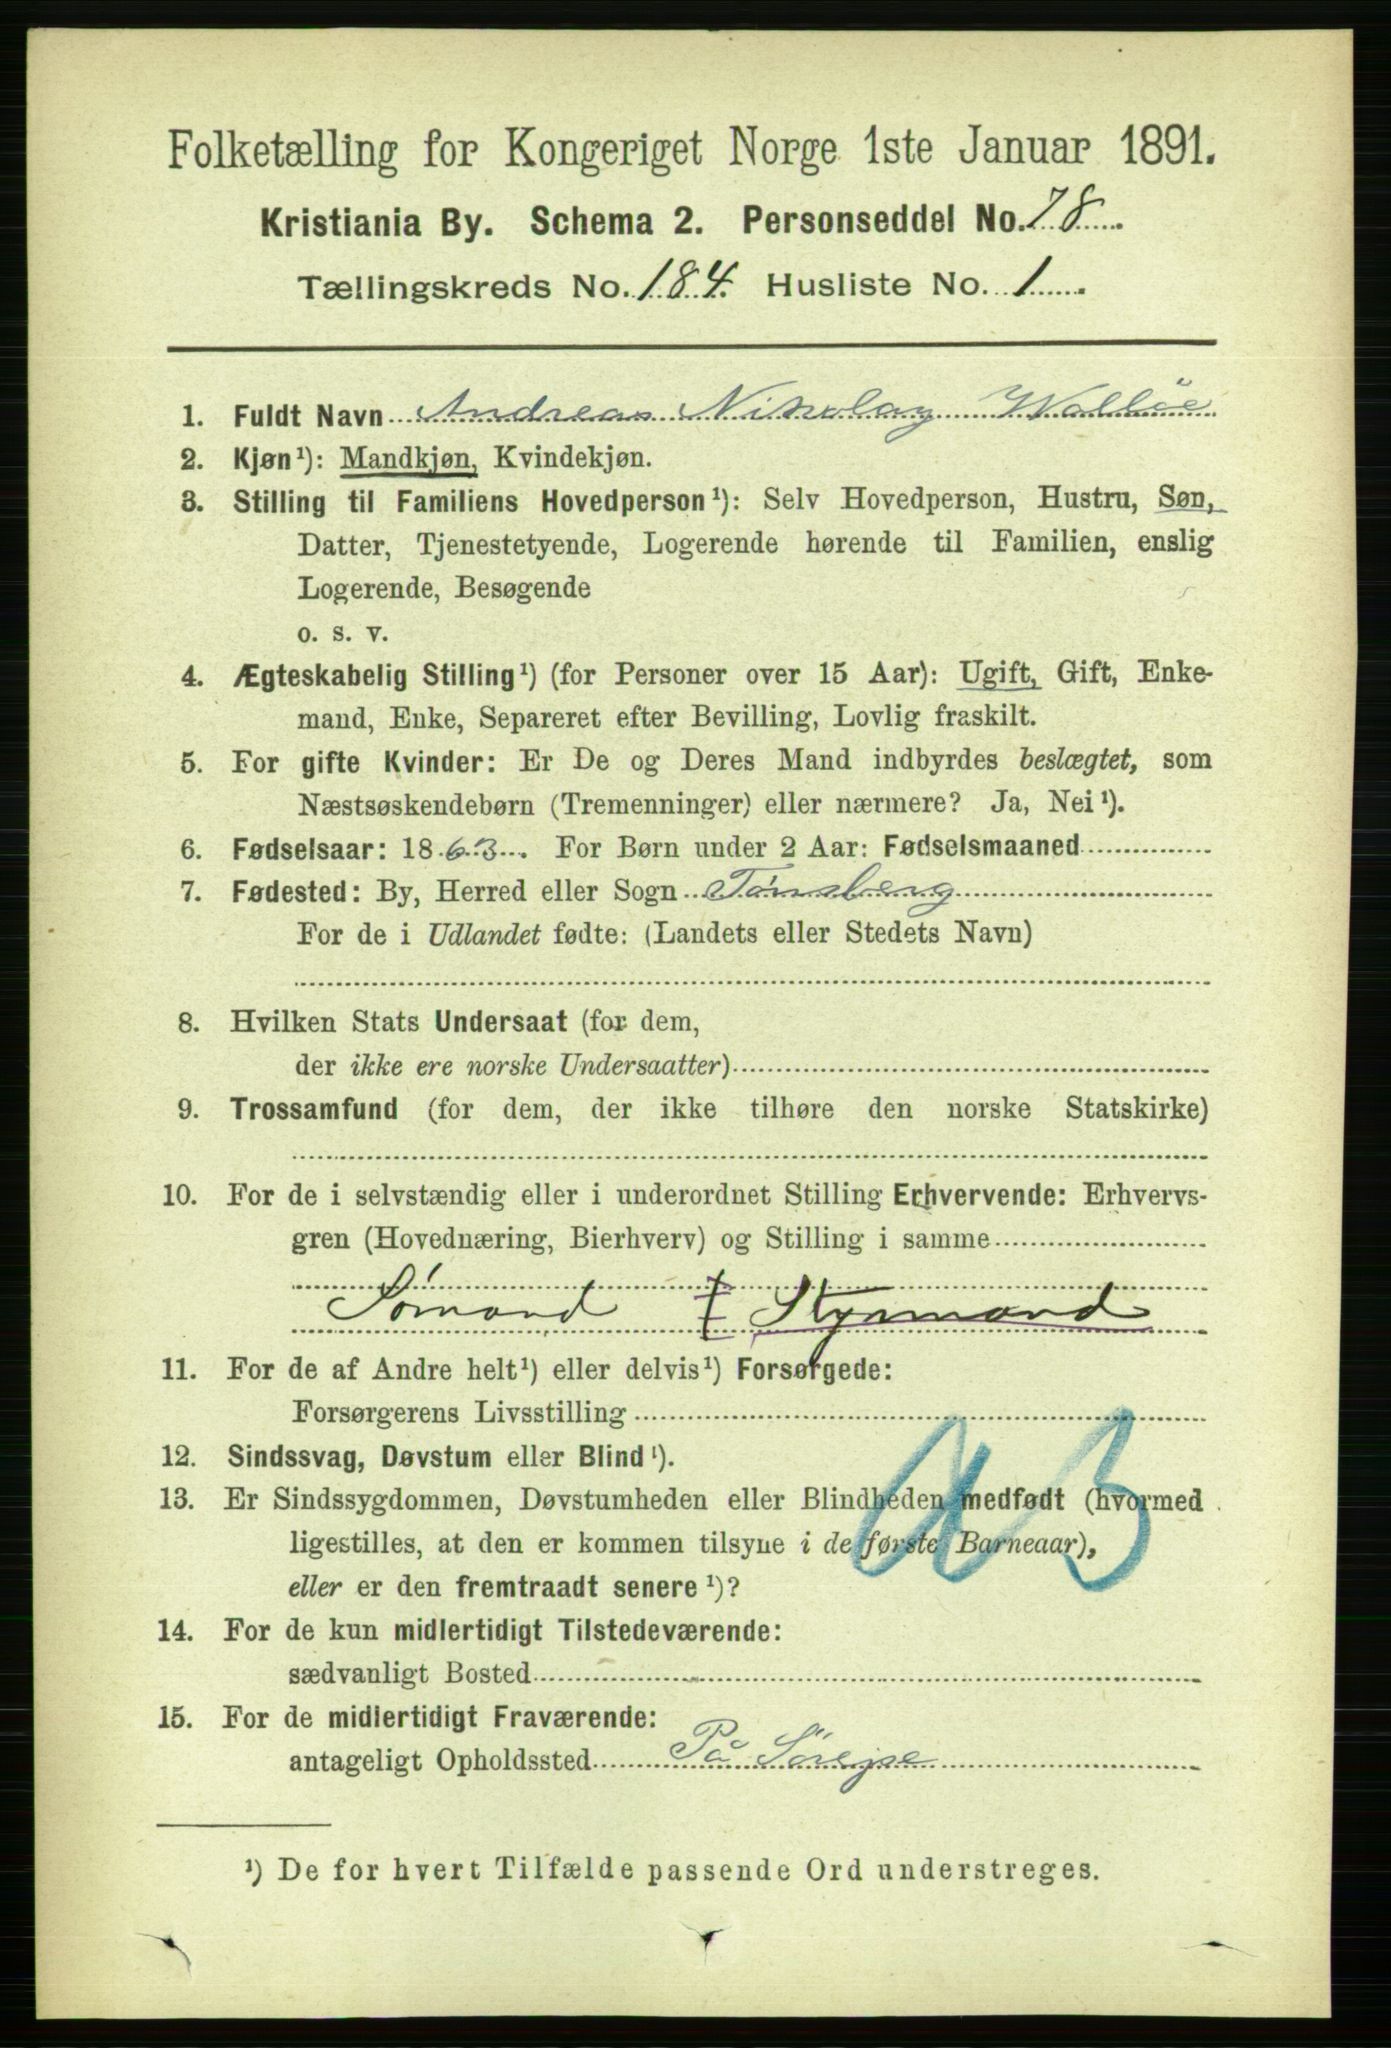 Folketælling for Kongeriget Norge 1ste Januar 1891.
Kristiania By. Schema 2. Personseddel No. 78
Tællingskreds No. 184. Husliste No. 1
1. Fuldt Navn Andreas Nikolay Wallöe
2. Kjøn¹): Mandkjøn, Kvindekjøn.
3. Stilling til Familiens Hovedperson¹): Selv Hovedperson, Hustru, Søn,
Datter, Tjenestetyende, Logerende hørende til Familien, enslig
Logerende, Besøgende
o. s. v.
4. Ægteskabelig Stilling¹) (for Personer over 15 Aar): Ugift, Gift, Enke-
mand, Enke, Separeret efter Bevilling, Lovlig fraskilt.
5. For gifte Kvinder: Er De og Deres Mand indbyrdes beslægtet, som
Næstsøskendebørn (Tremenninger) eller nærmere? Ja, Nei¹).
6. Fødselsaar: 1863. For Børn under 2 Aar: Fødselsmaaned
7. Fødested: By, Herred eller Sogn Tönsberg
For de i Udlandet fødte: (Landets eller Stedets Navn)
8. Hvilken Stats Undersaat (for dem,
der ikke ere norske Undersaatter)
9. Trossamfund (for dem, der ikke tilhøre den norske Statskirke)
10. For de i selvstændig eller i underordnet Stilling Erhvervende: Erhvervs-
gren (Hovednæring, Bierhverv) og Stilling i samme
Sömand Styrmand
11. For de af Andre helt¹) eller delvis¹) Forsørgede:
Forsørgerens Livsstilling
12. Sindssvag, Døvstum eller Blind¹).
13. Er Sindssygdommen, Døvstumheden eller Blindheden medfødt (hvormed
ligestilles, at den er kommen tilsyne i de første Barneaar),
eller er den fremtraadt senere¹)?
14. For de kun midlertidigt Tilstedeværende:
sædvanligt Bosted
15. For de midlertidigt Fraværende:
antageligt Opholdssted På Sörejse
¹) De for hvert Tilfælde passende Ord understreges.